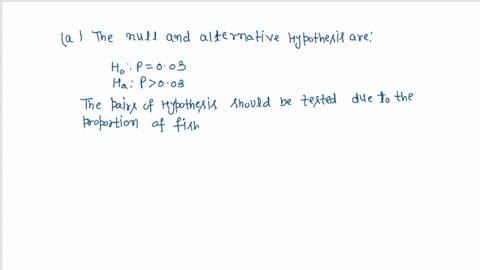 (a) The null and alternative Hypothesis are:
H₀: P=0.03
Ha: P>0.03
The pairs of Hypothesis should be tested due to the
proportion of fish